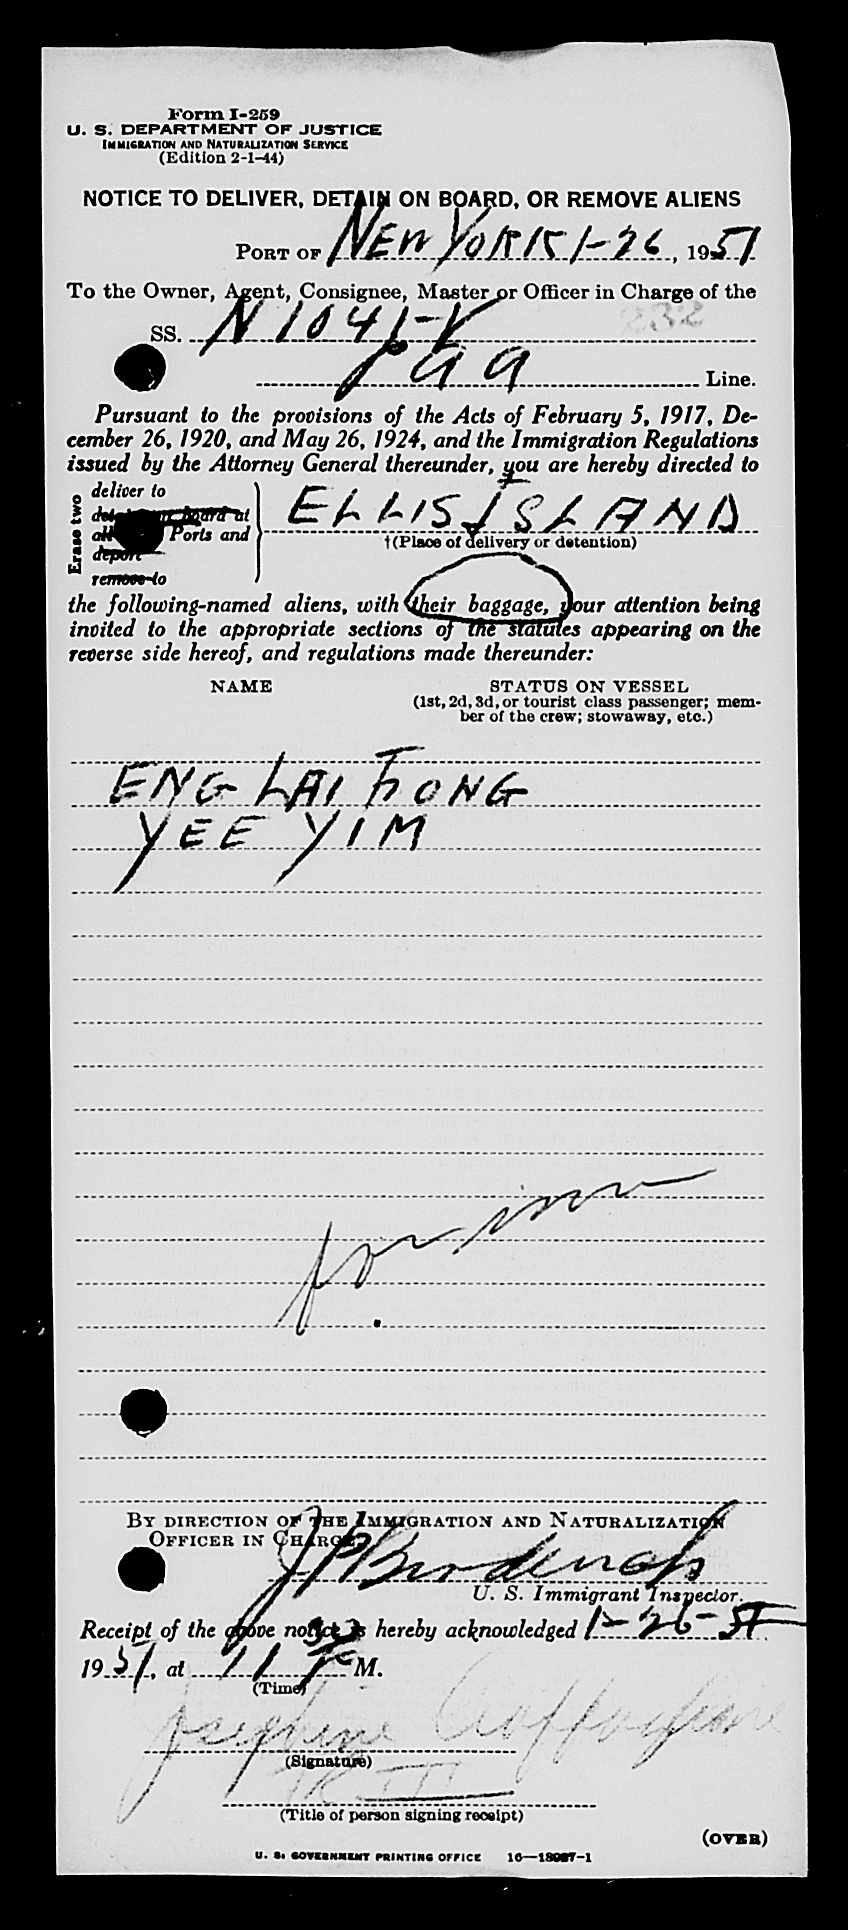 Form I-259
U. S. DEPARTMENT OF JUSTICE
IMMIGRATION AND NATURALIZATION SERVICE
(Edition 2-1-44)
NOTICE TO DELIVER, DETAIN ON BOARD, OR REMOVE ALIENS
PORT OF NEW YORK 1-26, 1951
To the Owner, Agent, Consignee, Master or Officer in Charge of the
232
SS. N 1041-V
PAA Line.
Pursuant to the provisions of the Acts of February 5, 1917, De-
cember 26, 1920, and May 26, 1924, and the Immigration Regulations
issued by the Attorney General thereunder, you are hereby directed to
Erase two
deliver to
board at
Ports and
deport
remove to
ELLIS ISLAND
†(Place of delivery or detention)
the following-named aliens, with their baggage, your attention being
invited to the appropriate sections of the statutes appearing on the
reverse side hereof, and regulations made thereunder:
NAME STATUS ON VESSEL
(1st, 2d, 3d, or tourist class passenger; mem-
ber of the crew; stowaway, etc.)
ENG LAI FONG
YEE YIM
BY DIRECTION OF THE IMMIGRATION AND NATURALIZATION
OFFICER IN CHARGE
U. S. Immigrant Inspector.
Receipt of the above notice is hereby acknowledged 1-26-51
1951, at 11 M.
(Time)
Josephine
(Signature)
(Title of person signing receipt)
(OVER)
U. S. GOVERNMENT PRINTING OFFICE